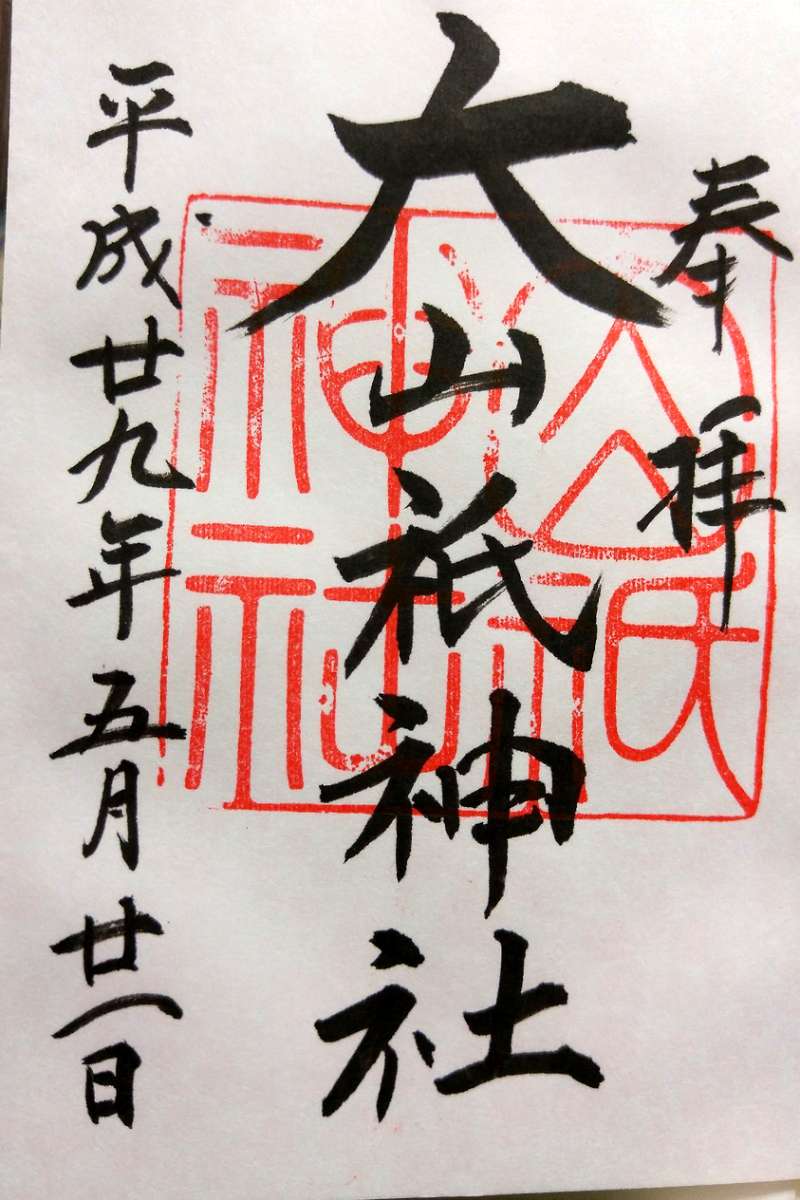 奉拝
大山祇神社
平成廿九年五月廿一日
大山祇神社